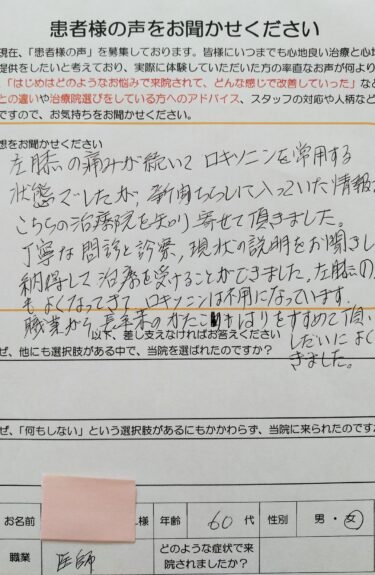 患者様の声をお聞かせください
現在、「患者様の声」を募集しております。皆様にいつまでも心地良い治療と心地
提供をしたいと考えており、実際に体験していただいた方の率直なお声が何より
「はじめはどのようなお悩みで来院されて、どんな感じで改善していった」など
との違いや治療院選びをしている方へのアドバイス、スタッフの対応や人柄など
ですので、お気持ちをお聞かせください。
想をお聞かせください
左膝の痛みが続いて ロキソニンを常用する
状態でしたが、新聞ちらしに入っていた情報で
こちらの治療院を知り 寄せて頂きました。
丁寧な問診と診察、現状の説明をお聞きし
納得して治療を受けることができました。左膝の
もよくなってきて ロキソニンは不用になっています。
職業から、長年来のかたこりやはりをすすめて頂い
しだいによく
きました。
以下、差し支えなければお答えください
ぜ、他にも選択肢がある中で、当院を選ばれたのですか？
ぜ、「何もしない」という選択肢があるにもかかわらず、当院に来られたのですか
お名前 様 年齢 60代 性別 男・女
職業 医師 どのような症状で来
院されましたか？